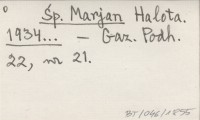 Śp. Marjan Halota.
1934... — Gaz. Podh.
22, nr 21.
BT/046/1855